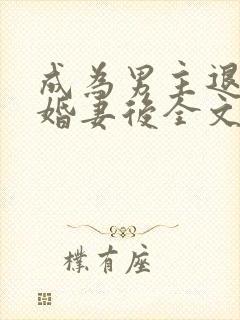 成為男主退
婚妻後全文
樸有座